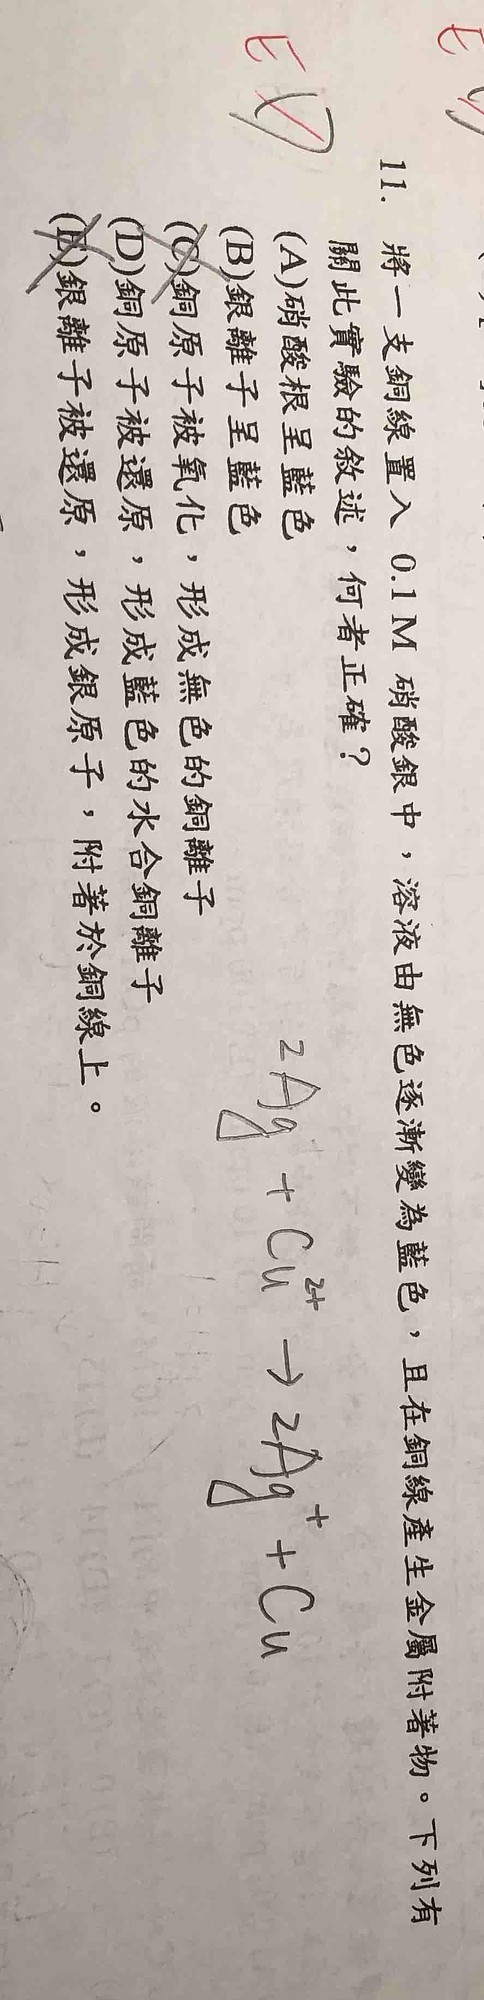 E D
11. 將一支銅線置入 0.1 M 硝酸銀中，溶液由無色逐漸變為藍色，且在銅線產生金屬附著物。下列有
關此實驗的敘述，何者正確？
(A)硝酸根呈藍色
(B)銀離子呈藍色
(C)銅原子被氧化，形成無色的銅離子
(D)銅原子被還原，形成藍色的水合銅離子
(E)銀離子被還原，形成銀原子，附著於銅線上。
2Ag + Cu²⁺ → 2Ag⁺ + Cu